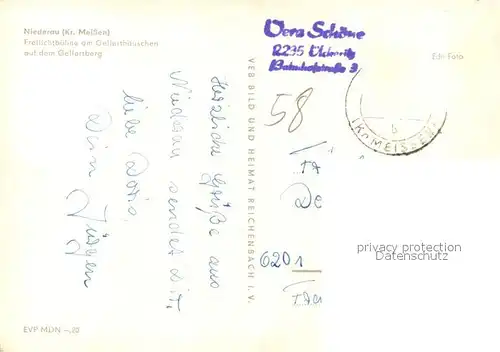 Niederau (Kr. Meißen)
Freilichtbühne am Gellerthäuschen
auf dem Gellertberg
Vera Schöne
Bahnhofstraße 3
Foto
58
(Kr. MEISSEN)
b
VEB BILD UND HEIMAT REICHENBACH I. V.
Herzliche Grüße aus
Niederau sendet Dir,
liebe Doris,
Dein Jürgen
De
6201
privacy protection
Datenschutz
EVP MDN -,20